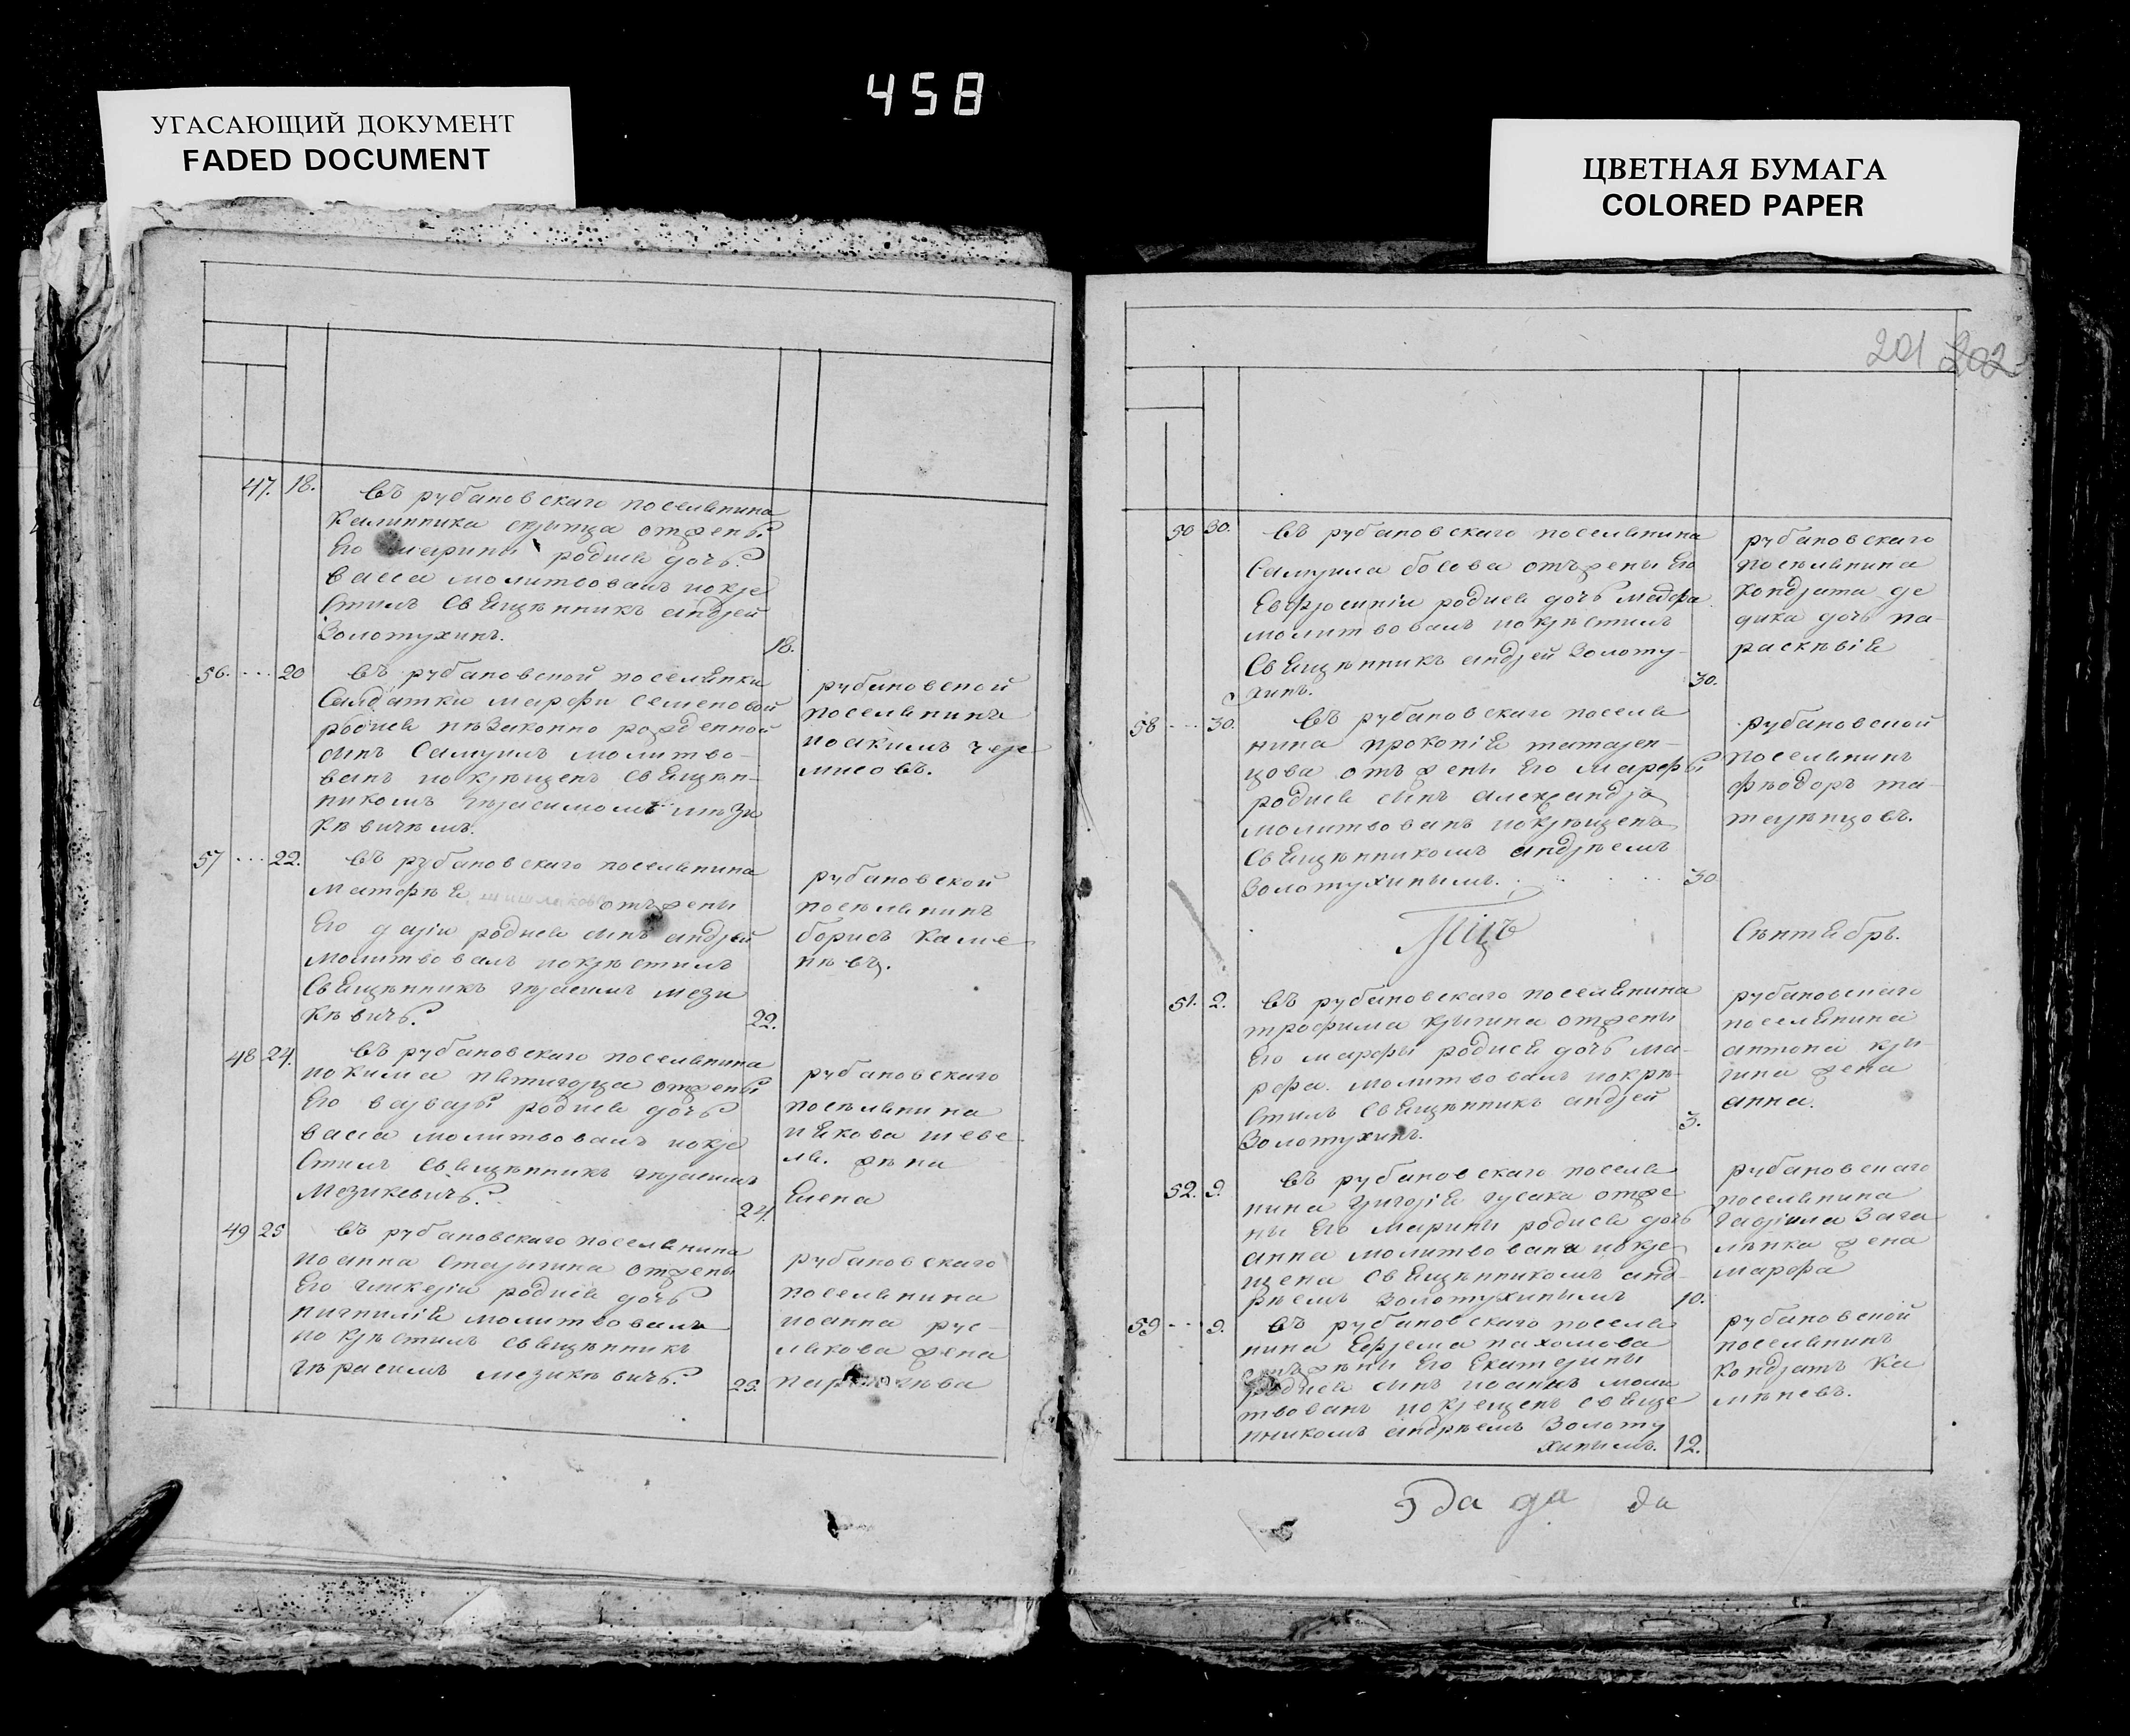 458
УГАСАЮЩИЙ ДОКУМЕНТ
FADED DOCUMENT
ЦВЕТНАЯ БУМАГА
COLORED PAPER
201 202
47. 18. въ рубановскаго поселянина
отжены
Его марины родися дочь
васса молитвовалъ покре
стилъ священникъ андрей
Золотухинъ.
18.
56. 20 въ рубановской поселянки
Салдатки марфи семеновой
родися незаконно рожденной
сынъ Самуилъ молитво-
ванъ покрещенъ священ-
никомъ герасимомъ мези
кевичемъ.
рубановской
поселянинъ
иоакимъ чере
мисовъ.
57 22. въ рубановскаго поселянина
Матфея отъжены
Его дарiи родися сынъ андрей
молитвовалъ покрестилъ
Священникъ герасимъ мези
кевичь.
22.
рубановской
поселянинъ
борисъ камѣ
невъ.
48 24. въ рубановскаго поселянина
иокима пятигорца отжены
Его варвары родися дочь
васса молитвовалъ покре
стилъ священникъ герасимъ
Мезикевичь.
24.
рубановскаго
поселянина
иякова шеве
ля. жена
Елена
49 25 въ рубановскаго поселянина
иоанна отжены
Его гликерiи родися дочь
молитвовалъ
покрестилъ священникъ
герасимъ мезикевичь.
25.
рубановскаго
поселянина
иоанна рус-
лякова жена
50 30. въ рубановскаго поселянина
Самуила босова отъжены Его
Евфросинiи родися дочь марфа
молитвовалъ покрестилъ
Священникъ андрей Золоту-
хинъ.
30.
рубановскаго
поселянина
кондрата де
дика дочь па-
раскевiя
58 30. въ рубановскаго поселя
нина прокопiя татарен-
цова отъжены Его марфы
родися сынъ александръ
молитвованъ покрещенъ
Священникомъ андреемъ
Золотухинымъ.
30
рубановской
поселянинъ
феодоръ та-
таренцовъ.
Мцъ Сентябрь.
51. 2. въ рубановскаго поселянина
трофима кригина отжены
Его марфы родися дочь ма-
рфа. молитвовалъ покре-
стилъ Священникъ андрей
Золотухинъ.
3.
рубановскаго
поселянина
антона кри-
гина жена
анна.
52. 9. въ рубановскаго поселя
нина григорiя гусака отже
ны Его марины родися дочь
анна молитвована покре
щена священникомъ анд-
реемъ золотухинымъ
10.
рубановскаго
поселянина
гаврiила зага
ленка жена
марфа
59 9. въ рубановскаго поселя
нина Ефрема пахомова
отъжены Его Екатерины
родися сынъ иоаннъ моли
твованъ покрещенъ свяще
нникомъ андреемъ Золоту
хинымъ. 12.
рубановской
поселянинъ
кондратъ ка
меневъ.
да да да